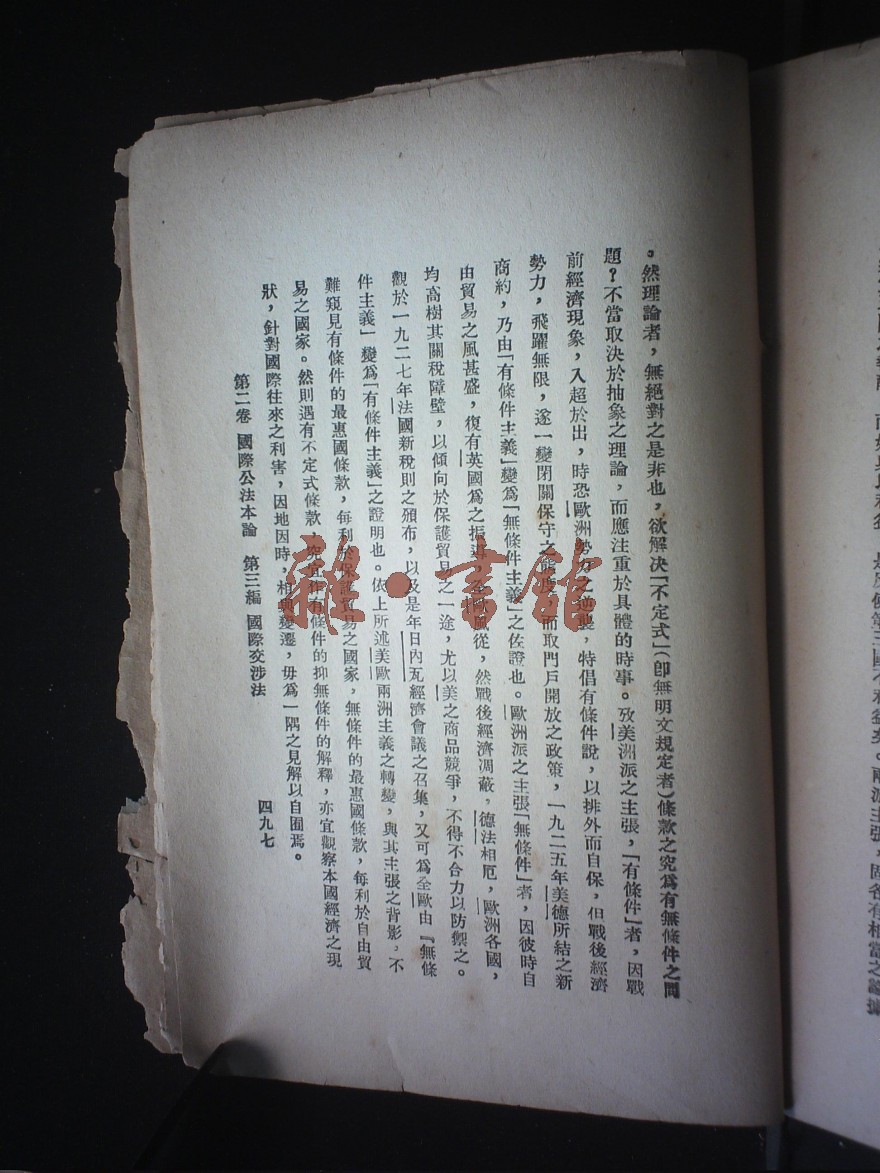 。然理論者，無絕對之是非也，欲解決「不定式」（卽無明文規定者）條款之究爲有無條件之問
題？不當取決於抽象之理論，而應注重於具體的時事。攷美洲派之主張，「有條件」者，因戰
前經濟現象，入超於出，時恐歐洲勢力之逆襲，特倡有條件說，以排外而自保，但戰後經濟
勢力，飛躍無限，遂一變閉關保守之態度，而取門戶開放之政策，一九二五年美德所結之新
商約，乃由「有條件主義」變爲「無條件主義」之佐證也。歐洲派之主張「無條件」者，因彼時自
由貿易之風甚盛，復有英國爲之振導，全歐風從，然戰後經濟凋蔽，德法相厄，歐洲各國，
均高樹其關稅障壁，以傾向於保護貿易之一途，尤以美之商品競爭，不得不合力以防禦之。
觀於一九二七年法國新稅則之頒布，以及是年日內瓦經濟會議之召集，又可爲全歐由『無條
件主義」變爲「有條件主義」之證明也。依上所述美歐兩洲主義之轉變，與其主張之背影，不
難窺見有條件的最惠國條款，每利於保護貿易之國家，無條件的最惠國條款，每利於自由貿
易之國家。然則遇有不定式條款，究宜作有條件的抑無條件的解釋，亦宜觀察本國經濟之現
狀，針對國際往來之利害，因地因時，相與變遷，毋爲一隅之見解以自囿焉。
第二卷 國際公法本論 第三編 國際交涉法 四九七
雜·書館